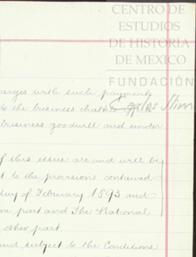 CENTRO DE
ESTUDIOS
DE HISTORIA
DE MEXICO
FUNDACIÓN
Carlos Slim
arges with such payments
to the business
business goodwill and under
of this issue are and will be
to the provisions contained
day of February 1893 and
part and The National
other part
and subject to the Conditions